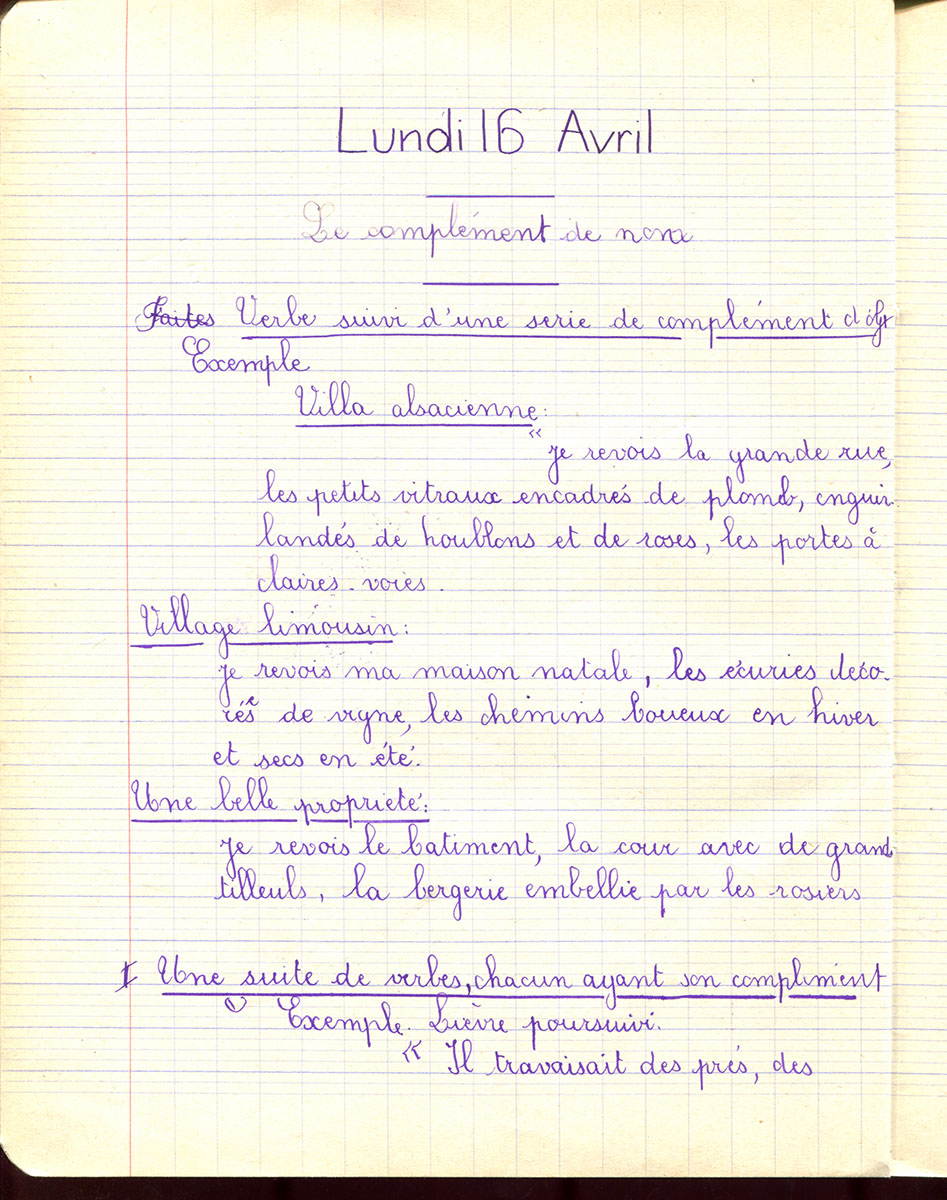 Lundi 16 Avril
Le complément de nom
Faites Verbe suivi d'une serie de complément d'obj
Exemple
Villa alsacienne :
« je revois la grande rue,
les petits vitraux encadrés de plomb, enguir-
landés de houblons et de roses, les portes à
claires-voies.
Village limousin :
je revois ma maison natale, les écuries déco-
rées de vigne, les chemins boueux en hiver
et secs en été.
Une belle propriété :
je revois le batiment, la cour avec de grand
tilleuls, la bergerie embellie par les rosiers
I Une suite de verbes, chacun ayant son compliment
Exemple. Lièvre poursuivi.
« Il travaisait des prés, des